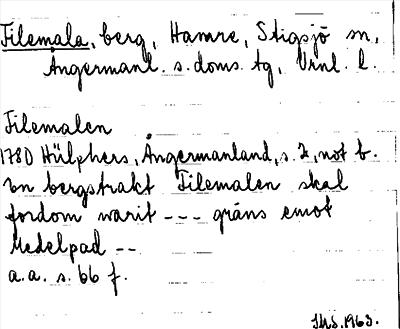 Filemåla, berg, Hamre, Stigsjö sn,
Ångermanl. s. doms. tg, Vrnl. l.
Filemalen
1780 Hülphers, Ångermanland, s. 2, not b.
en bergstrakt Filemalen skal
fordom warit --- gräns emot
Medelpad --
a.a. s. 66 f.
1963.